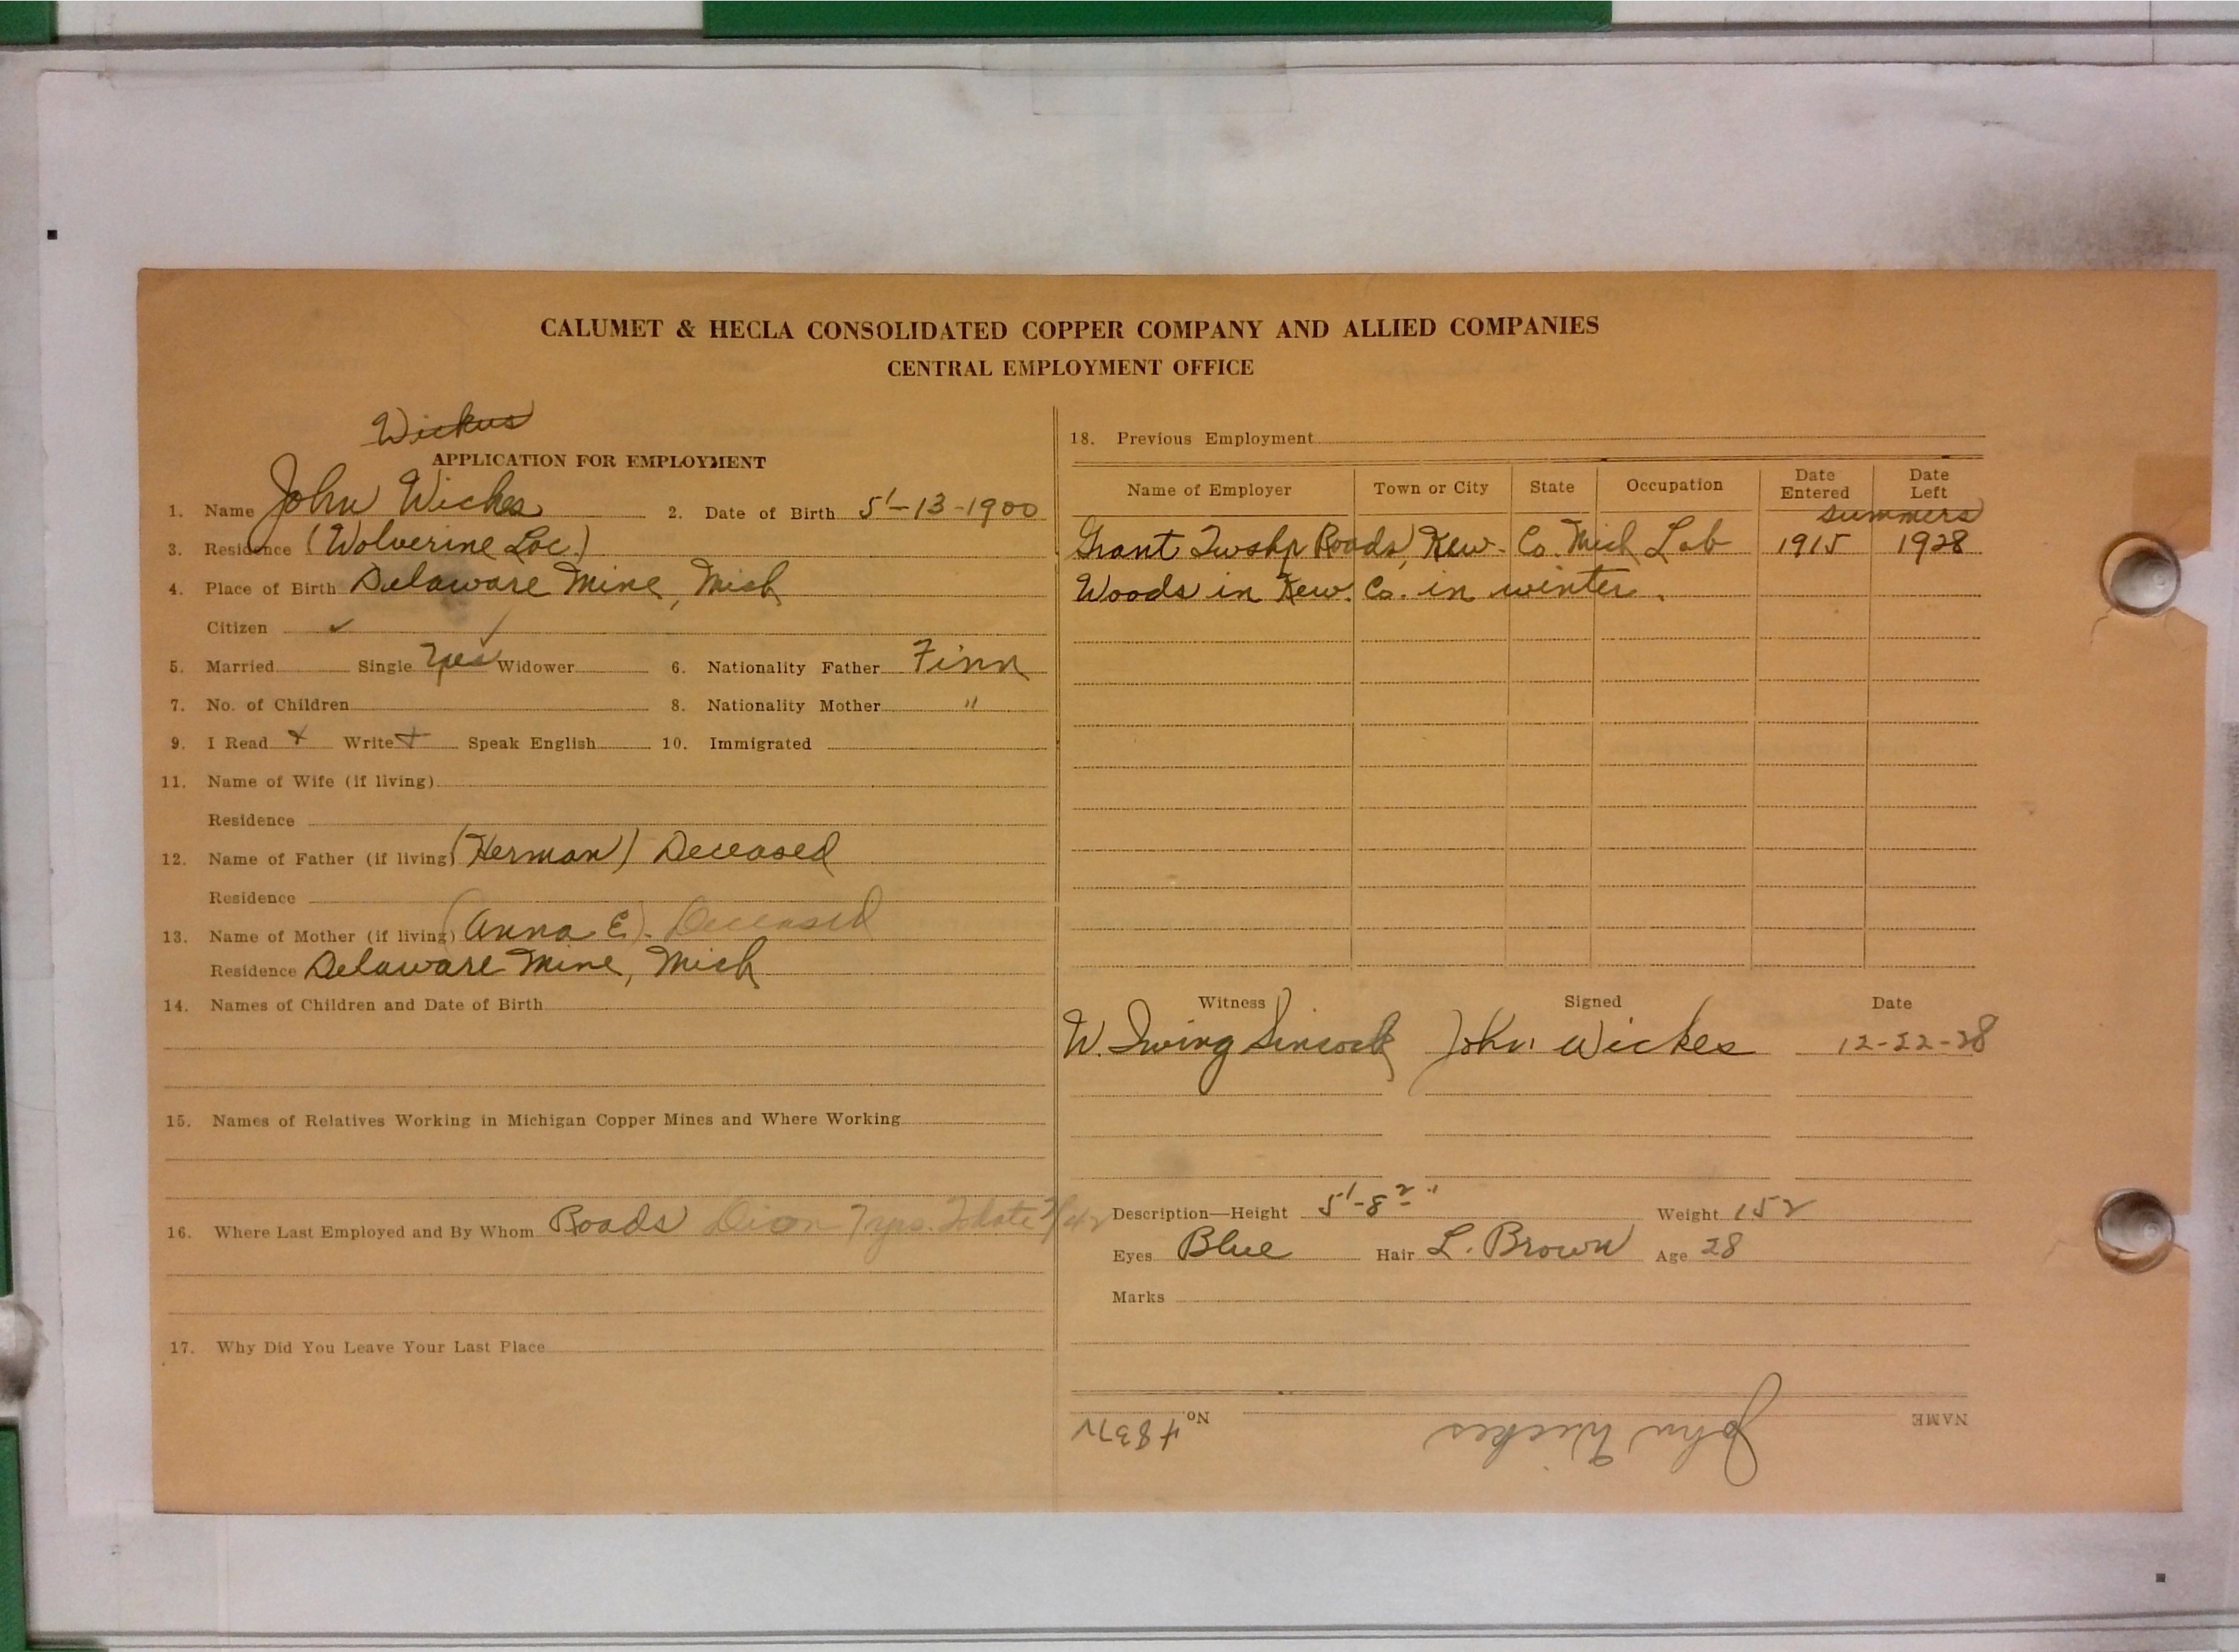 CALUMET & HECLA CONSOLIDATED COPPER COMPANY AND ALLIED COMPANIES
CENTRAL EMPLOYMENT OFFICE
Wickus
APPLICATION FOR EMPLOYMENT
1. Name John Wickes 2. Date of Birth 5-13-1900
3. Residence (Wolverine Loc.)
4. Place of Birth Delaware Mine, Mich
Citizen ✓
5. Married Single Yes Widower 6. Nationality Father Finn
7. No. of Children 8. Nationality Mother "
9. I Read + Write + Speak English 10. Immigrated
11. Name of Wife (if living)
Residence
12. Name of Father (if living) (Herman) Deceased
Residence
13. Name of Mother (if living) (Anna E). Deceased
Residence Delaware Mine, Mich
14. Names of Children and Date of Birth
15. Names of Relatives Working in Michigan Copper Mines and Where Working
16. Where Last Employed and By Whom Roads
17. Why Did You Leave Your Last Place
18. Previous Employment
Name of Employer Town or City State Occupation Date Entered Date Left
summers
Grant Twshp Roads, Kew. Co. Mich Lab 1915 1928
Woods in Kew. Co. in winter.
Witness Signed Date
W. Irving Sincock John Wickes 12-22-28
Description—Height 5'-8 2" Weight 152
Eyes Blue Hair L. Brown Age 28
Marks
NAME John Wickes No. 48372